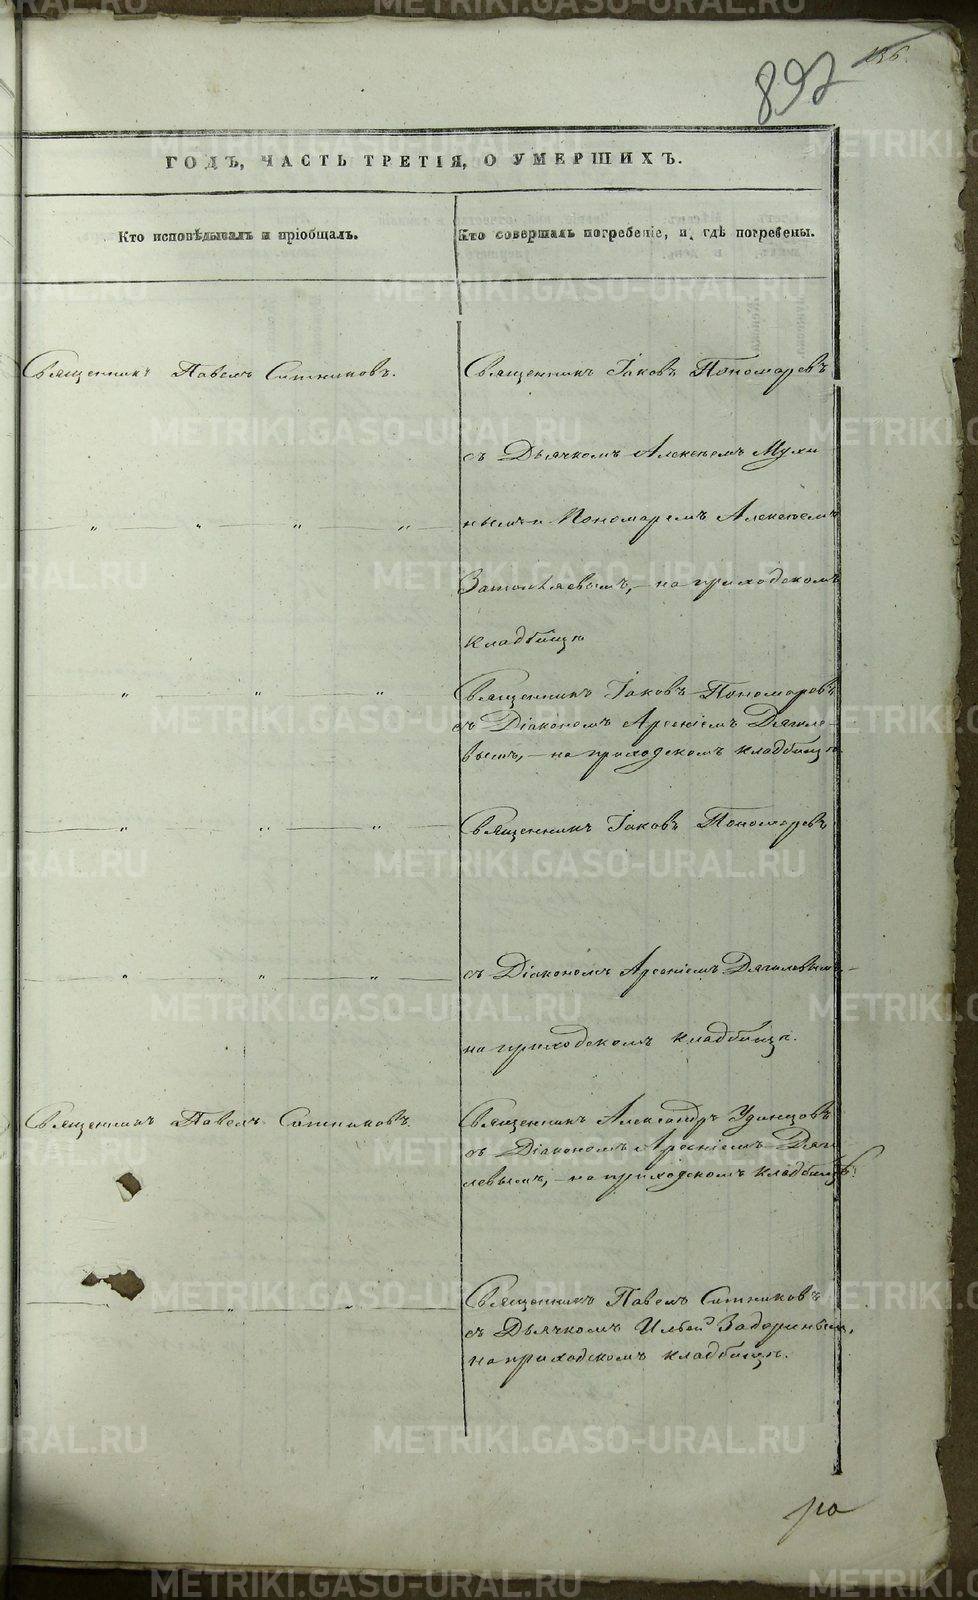 892
156.
ГОДЪ, ЧАСТЬ ТРЕТІЯ, О УМЕРШИХЪ.
Кто исповѣдывалъ и пріобщалъ.
Кто совершалъ погребеніе, и гдѣ погребены.
Священникъ Павелъ Ситниковъ.
Священникъ Іаковъ Пономаревъ
съ Дьячкомъ Алексѣемъ Мухи
нымъ и Пономаремъ Алексѣемъ
на приходскомъ
кладбищѣ
Священникъ Іаковъ Пономаревъ
съ Діакономъ Арсеніемъ Дягиле-
вымъ, – на приходскомъ кладбищѣ
Священникъ Іаковъ Пономаревъ
съ Діакономъ Арсеніемъ Дягилевымъ –
на приходскомъ кладбищѣ.
Священникъ Павелъ Ситниковъ.
Священникъ Александръ Удинцовъ
съ Діакономъ Арсеніемъ Дяги
левымъ, – на приходскомъ кладбищѣ.
Священникъ Павелъ Ситниковъ
съ Дьячкомъ Ильей Задоринымъ,
на приходскомъ кладбищѣ.
METRIKI.GASO-URAL.RU